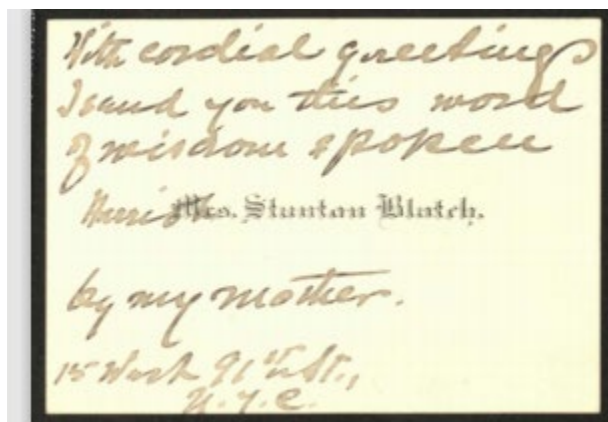 With cordial greetings
I send you this word
of wisdom spoken
Harriot Mrs. Stanton Blatch.
by my mother.
15 West 91st St.,
N.Y.C.